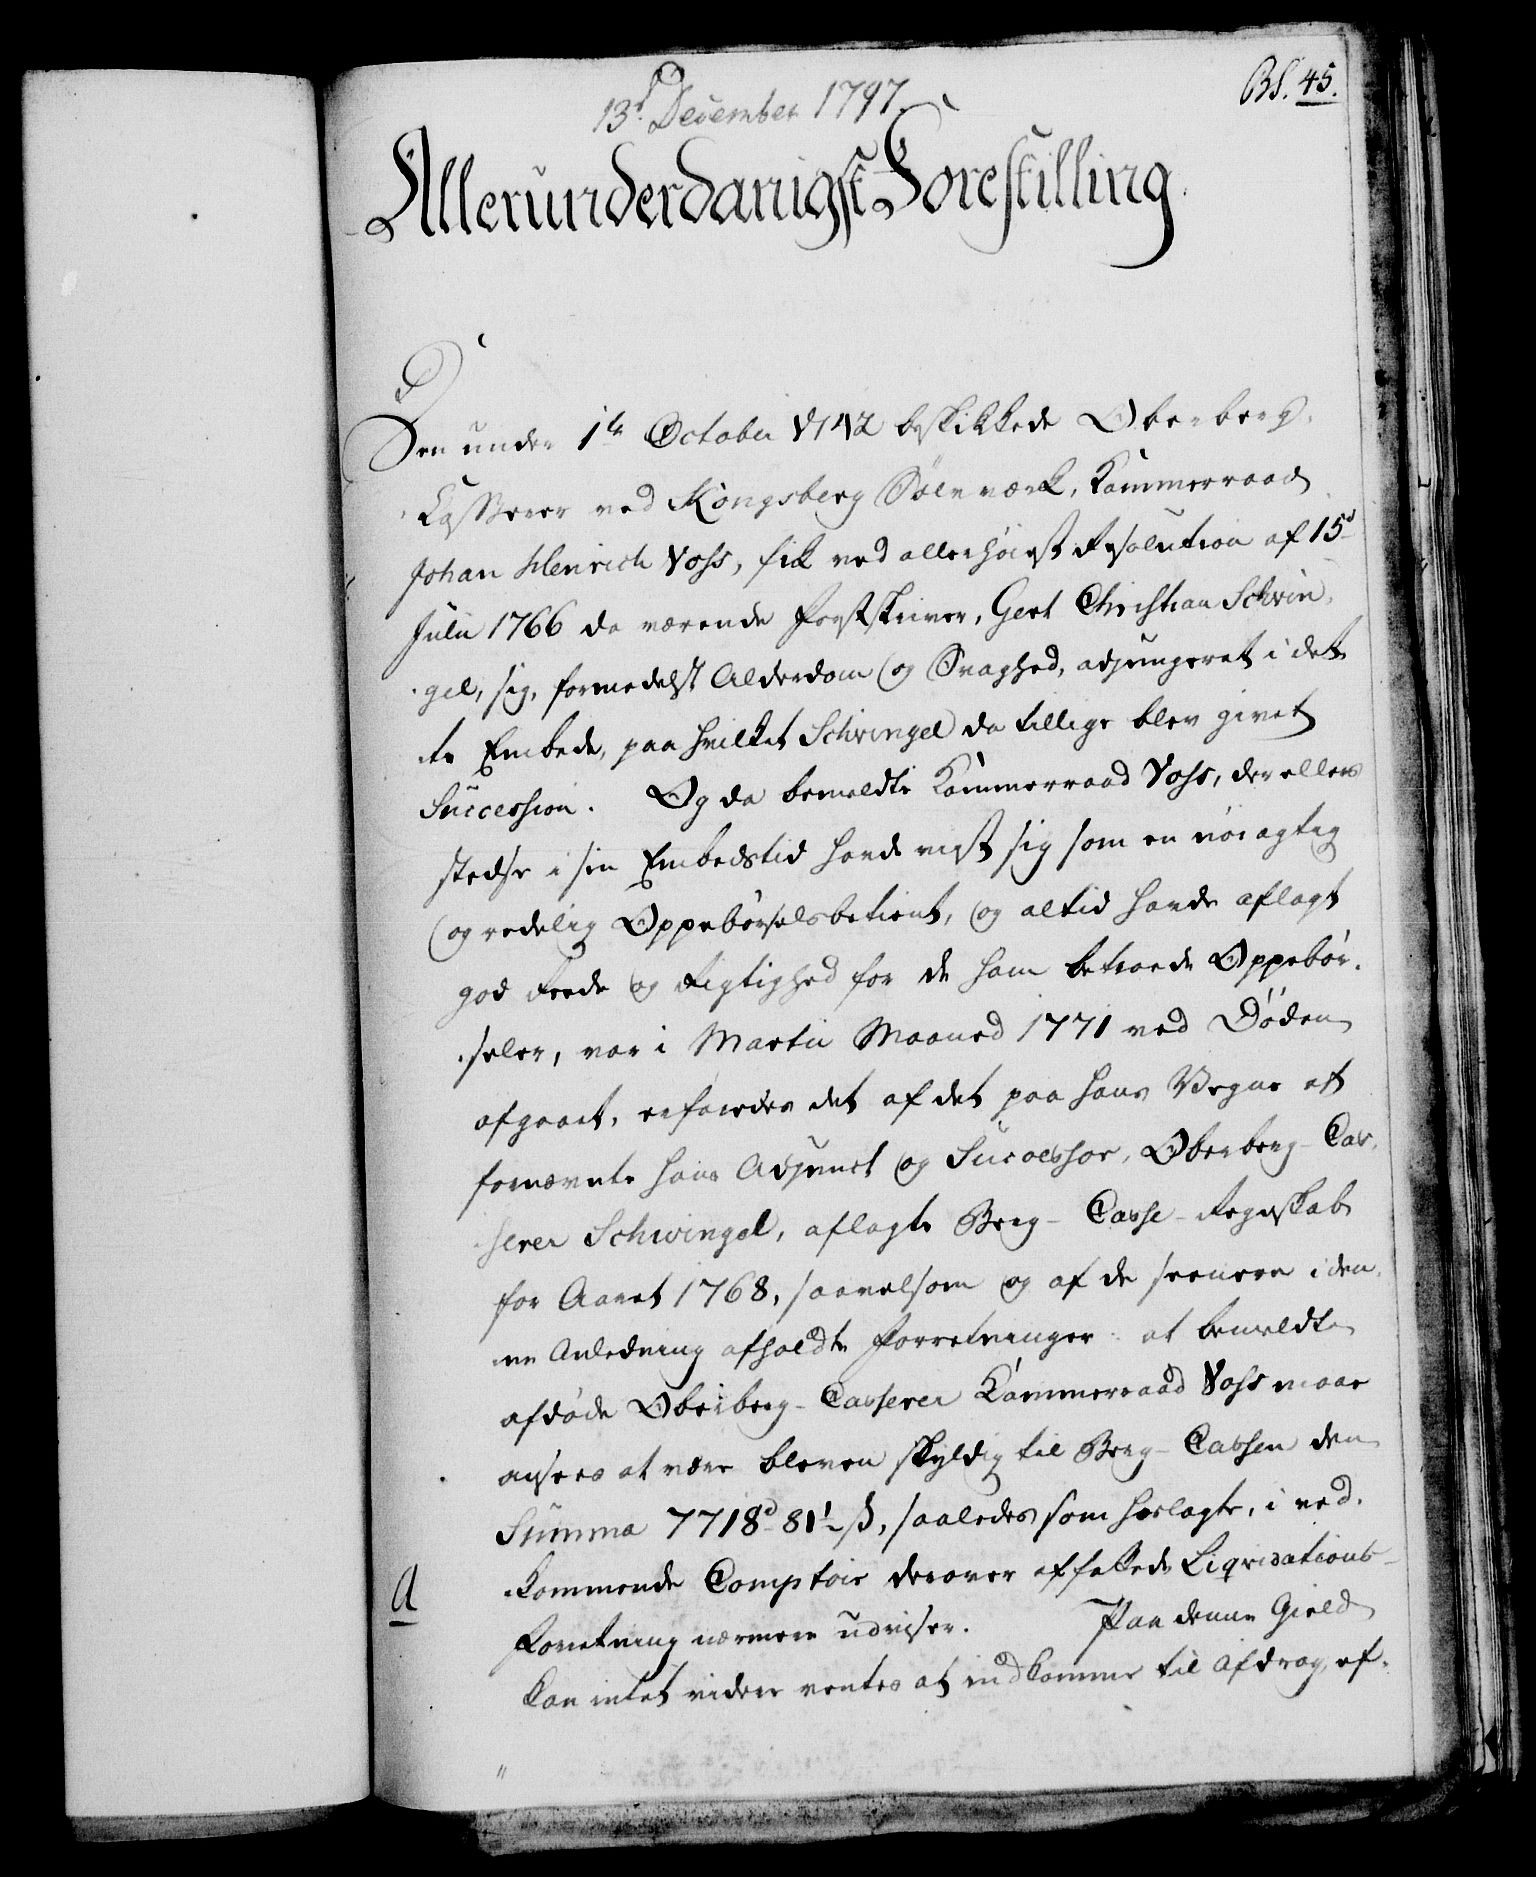 13d December 1797.
BS. 45.
Allerunderdanigst Forestilling.
Den under 1te October 1742 beskikkede Oberberg-
Casserer ved Kongsberg Sølvværk, Kammerraad
Johan Henrich Voss, fik ved allerhøiest Resolution af 15d
Julii 1766 da værende Forstskriver, Gert Christian Schvin-
gel, sig, formedelst Alderdom og Svaghed, adjungeret i det-
te Embede, paa hvilket Schvingel da tillige blev givet
Succession. Og da bemeldte Kammerraad Voss, der ellers
stedse i sin Embedstid havde viist sig som en nøiagtig
og redelig Oppebørselsbetient, og altid havde aflagt
god Reede og Rigtighed for de ham betroede Oppebør-
seler, var i Martii Maaned 1771 ved Døden
afgaaet, erfaredes det af det paa hans Vegne af
fornævnte hans Adjunct og Successor, Oberberg-Cas-
serer Schvingel, aflagte Berg-Casse-Regnskab
for Aaret 1768, saavelsom og af de seenere i den-
ne Anledning afholdte Forretninger at bemeldte
afdøde Oberberg-Casserer Kammerraad Voss maae
ansees at være bleven skyldig til Berg-Cassen den
Summa 7718d 81½ ß, saaledes som hoslagte, i ved-
A
kommende Comptoir derover affattede Liqvidations-
Forretning nærmere udviser. Paa denne Gield
kan intet videre ventes at indkomme til Afdrag, ef-